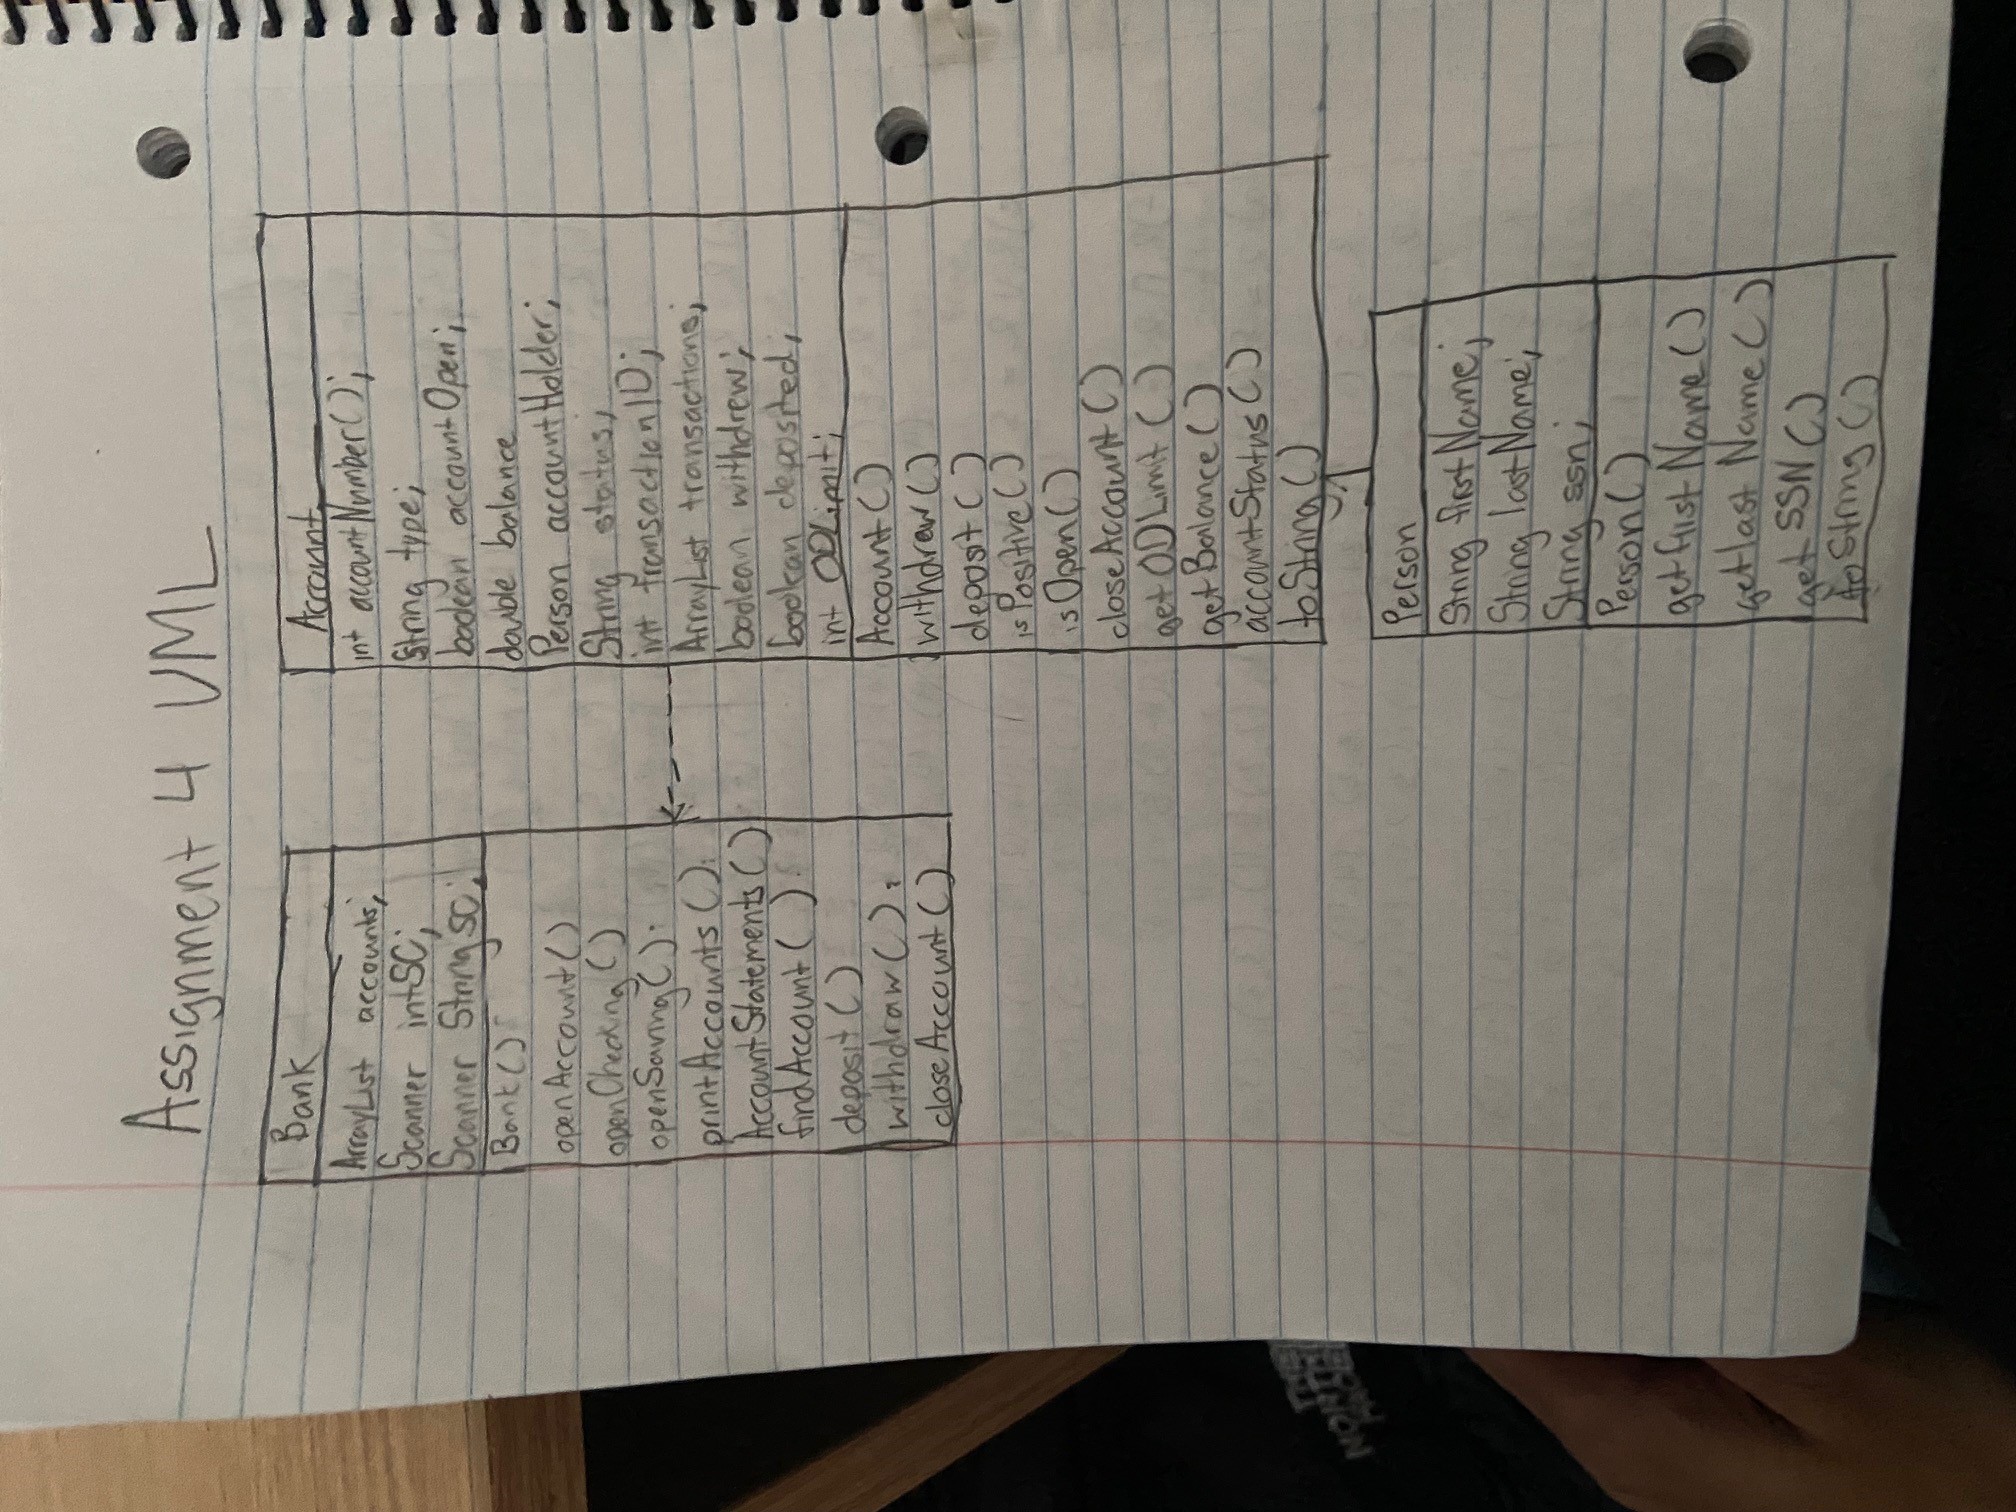 Assignment 4 UML
Bank
ArrayList accounts;
Scanner intSC;
Scanner StringSC;
Bank()
openAccount()
openChecking()
openSaving():
printAccounts():
AccountStatements()
findAccount():
deposit()
withdraw():
closeAccount()
Account
int accountNumber();
String type;
boolean accountOpen;
double balance
Person accountHolder;
String status;
int transactionID;
ArrayList transactions;
boolean withdrew;
boolean deposited;
int ODLimit;
Account()
withdrew()
deposit()
isPositive()
isOpen()
closeAccount()
getODLimit()
getBalance()
accountStatus()
toString()
1
Person
String firstName;
String lastName;
String ssn;
Person()
getfirstName()
getlastName()
getSSN()
toString()